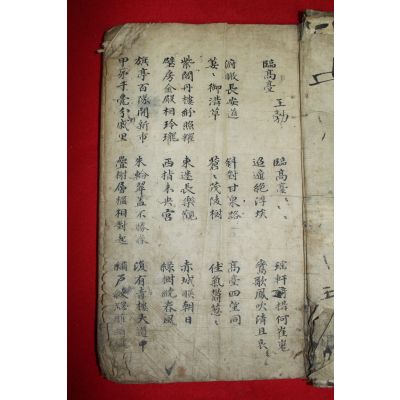 臨高臺 王勃
臨高臺〻〻
迢遞絕浮埃
瑤軒綺構何崔嵬
鸞歌鳳吹清且哀
俯瞰長安道
萋〻御溝草
斜對甘泉路
蒼〻茂陵樹
高臺四望同
佳氣鬱葱〻
紫閣丹樓紛照耀
璧房金殿相玲瓏
東迷長樂觀
西指未央宮
赤城暎朝日
綠樹搖春風
旗亭百隊開新市
甲第千甍分戚里
朱輪翠盖不勝春
疊榭層楹相對起
復有青樓大道中
繡戶